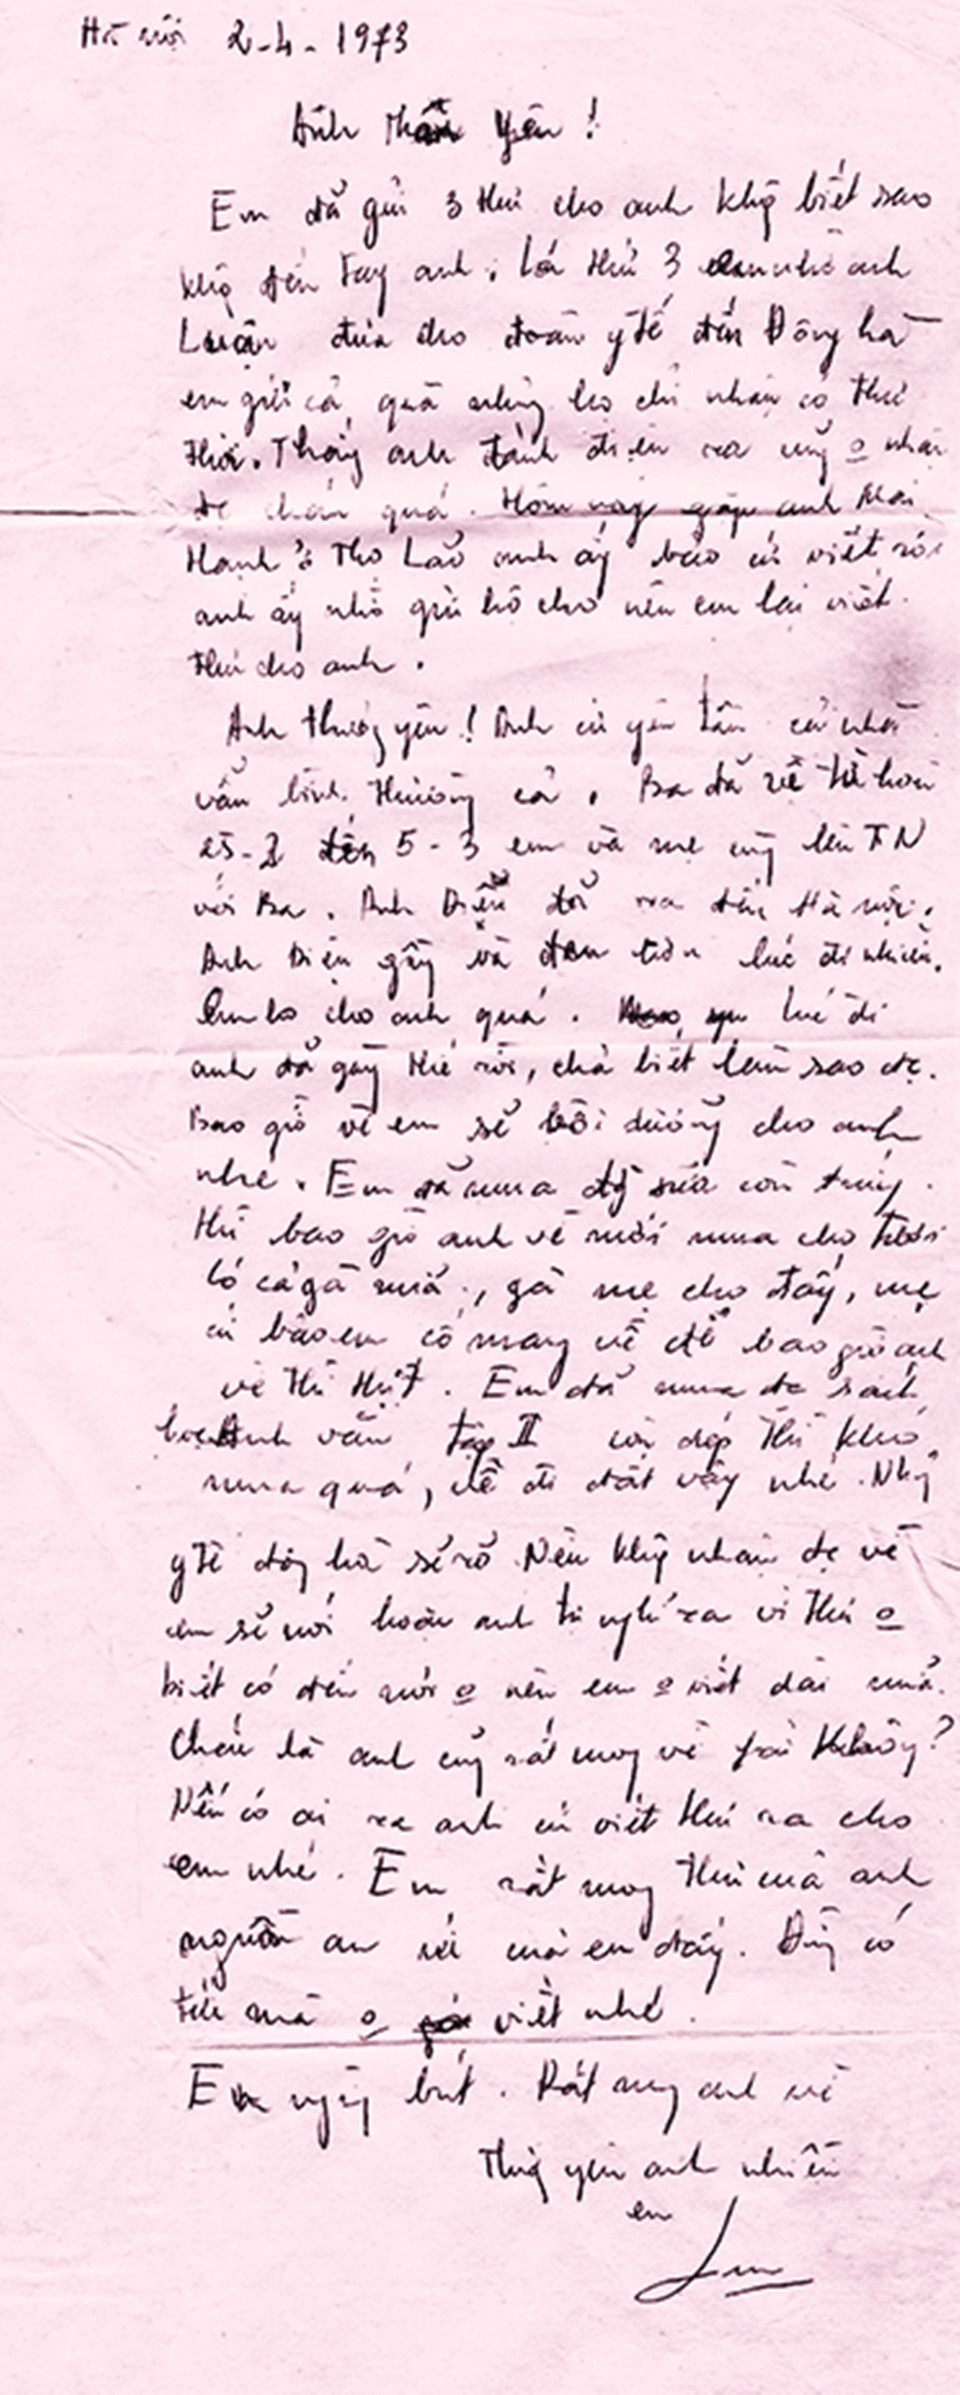 Hà nội 2-4-1973
Anh Thân yêu !
Em đã gửi 3 thư cho anh khg biết sao
khg đến tay anh. Lá thứ 3 em nhờ anh
Luận đưa cho đoàn y tế đến Đông hà
em gửi cả quà nhưng họ chỉ nhận có thư
thôi. Thấy anh đánh điện ra cũg o nhận
đc chán quá. Hôm nay gặp anh Mai
Hạnh ở Thợ Lão anh ấy bảo cứ viết rồi
anh ấy nhờ gửi hộ cho nên em lại viết
thư cho anh.
Anh thương yêu ! Anh cứ yên tâm cả nhà
vẫn bình thường cả. Ba đã về từ hôm
25-2 đến 5-3 em và mẹ cũg lên TN
với Ba. Anh Diễn đã ra đến Hà nội.
Anh Diện gầy và đen hơn lúc đi nhiều.
Em lo cho anh quá. lúc đi
anh đã gầy thế rồi, chả biết làm sao đc.
Bao giờ về em sẽ bồi dưỡng cho anh
nhé. Em đã mua đc sữa còn trứng
thì bao giờ anh về mới mua cho tươi
có cả gà nữa, gà mẹ cho đấy, mẹ
cứ bảo em cố mang về để bao giờ anh
về thì thịt. Em đã mua đc sách
học Anh văn tập II còn dép thì khó
mua quá, để đi đất vậy nhé. Nhg
y tế đông hà sẽ rõ. Nếu khg nhận đc về
em sẽ nói hoặc anh tự nghĩ ra vì thư o
biết có đến nơi o nên em o viết dài nữa.
Chắc là anh cũg rất mong về phải không?
Nếu có ai ra anh cứ viết thư ra cho
em nhé. Em rất mong thư của anh
nguồn an ủi của em đấy. Đừng có
tiếc mà o viết nhé.
Em ngừng bút. Rất mong anh về
Thương yêu anh nhiều
em